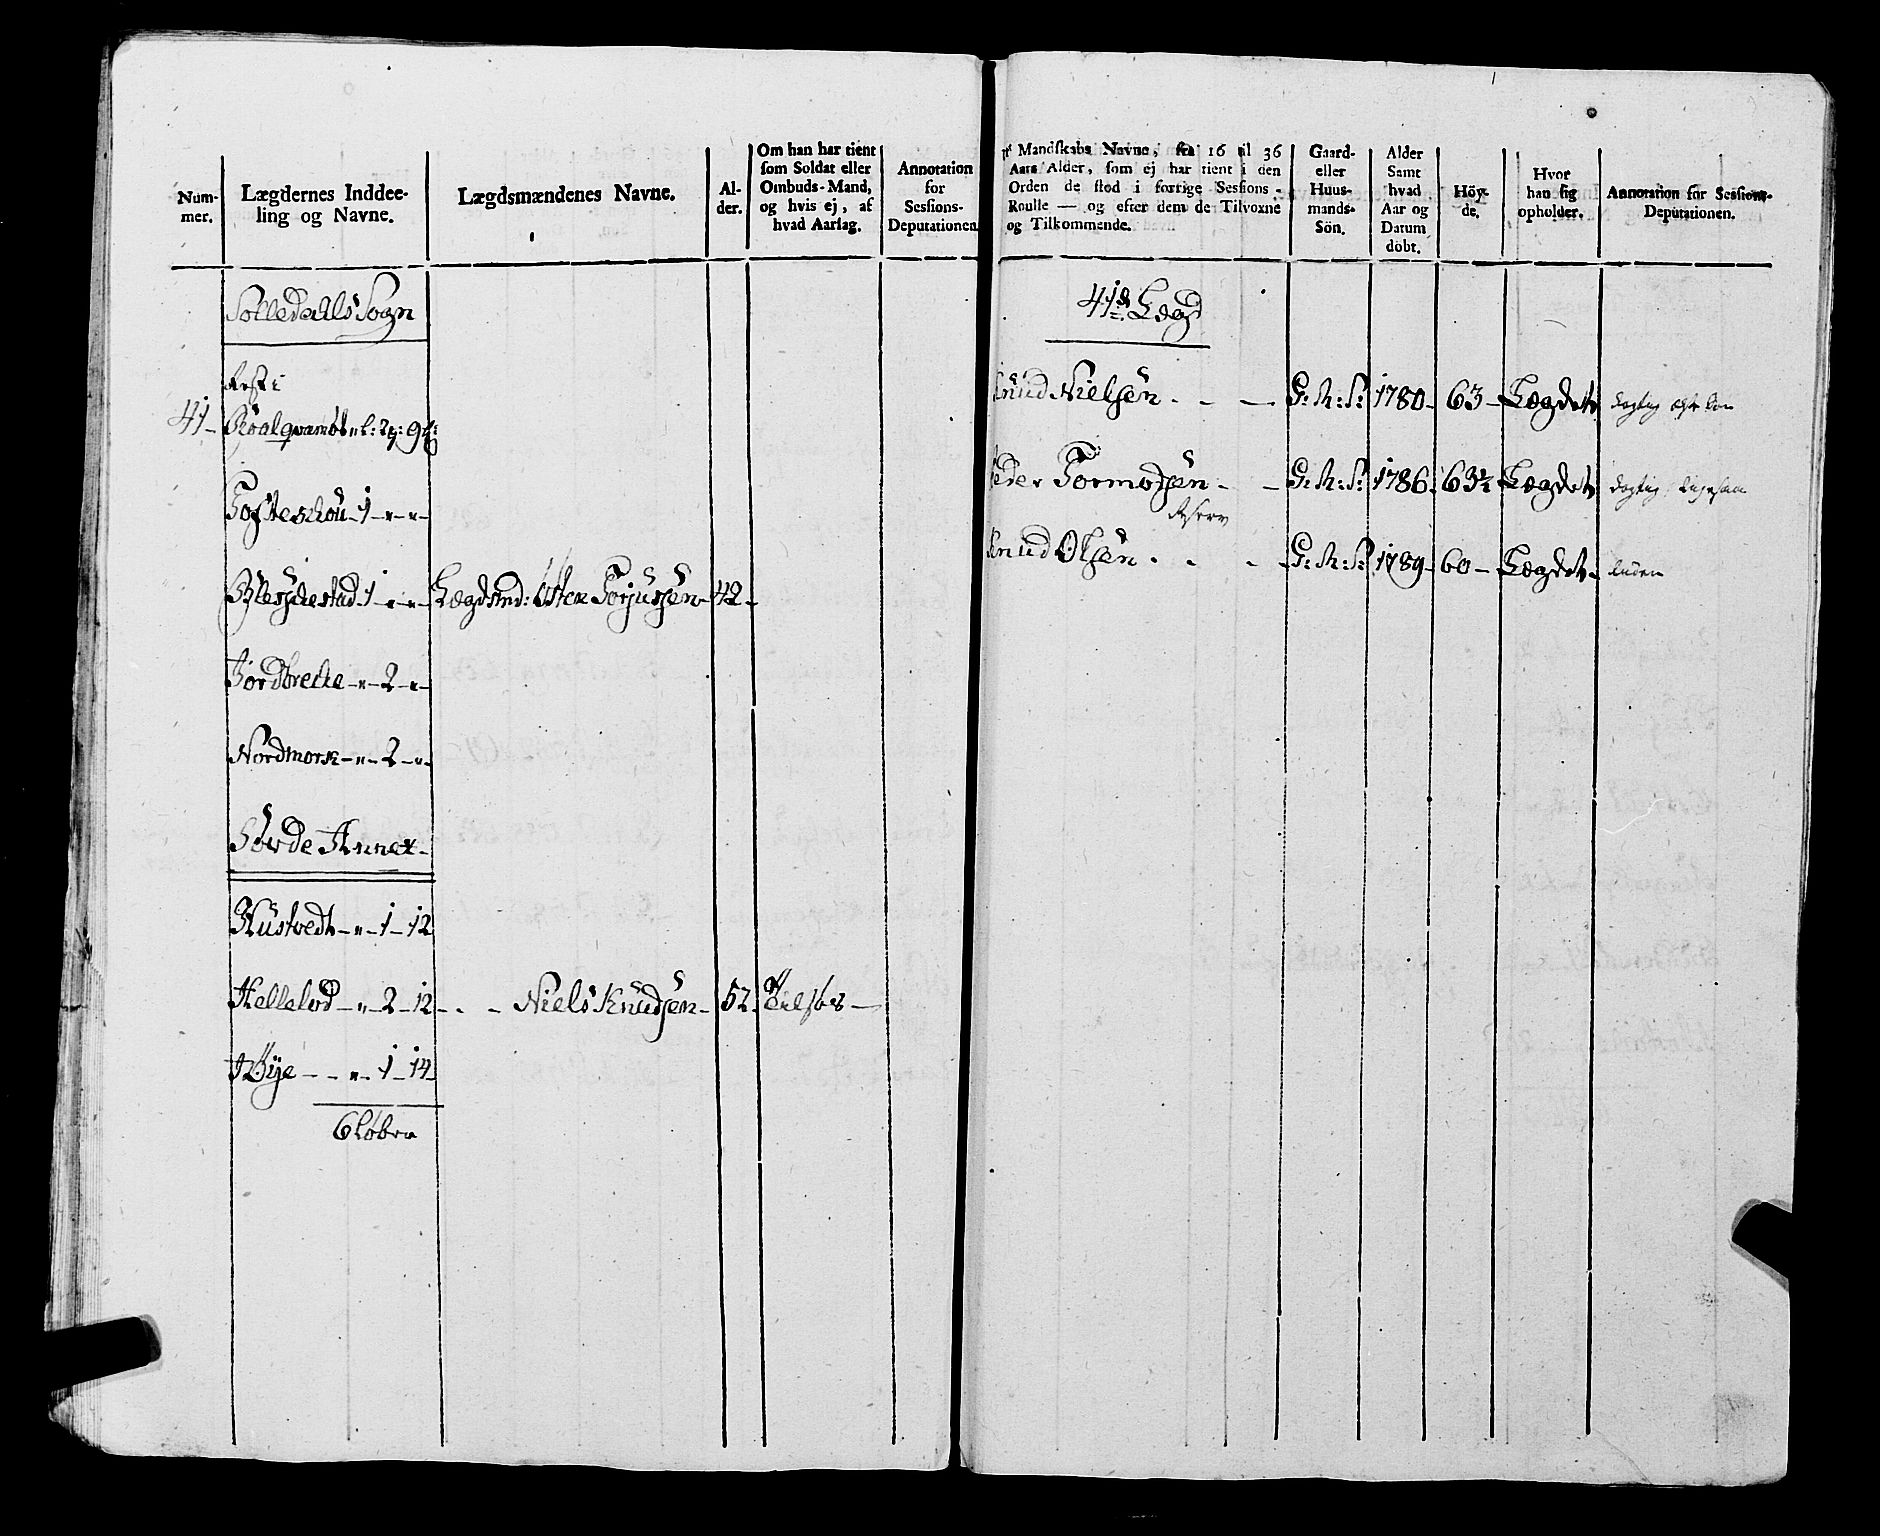 Num-
mer.
Lægdernes Inddee-
ling og Navne.
Lægdsmændenes Navne.
Al-
der.
Om han har tient
som Soldat eller
Ombuds-Mand,
og hvis ej, af
hvad Aarsag.
Annotation
for
Sessions-
Deputationen.
Solledahls Sogn
Rest i
41 - Röalqvamb " l: 2 9
Tofteschou - 1 - " - " -
Blesjdestad 1 - " - " - Lægdsmd: Østen Torjusjen - 42 -
Jordbrecke - " - 2 - " -
Nordmork - " - 2 - " -
Hovde Annex -
Hustvedt - " - 1 - 12
Hellelod - " - 2 - 12 - - - Niels Knudsen - 52.
Bije - - " - 1 - 14
6 Löber
Mandskabs Navne, fra 16 til 36
Aars Alder, som ej har tient i den
Orden de stod i forrige Sessions-
Roulle — og efter dem de Tilvoxne
og Tilkommende.
Gaard-
eller
Huus-
mands-
Sön.
Alder
Samt
hvad
Aar og
Datum
döbt.
Höy-
de.
Hvor
han sig
opholder.
Annotation for Sessions-
Deputationen.
41de Lægd
Knud Nielsen - - - G: M: S: 1780 - 63 - Lægdet dygtig
Peder Tormodsen - - G: M: S: 1786 - 63½ - Lægdet dygtig
Reserv
Knud Olsen - - - - G: M: S: 1789 - 60 - Lægdet - liden